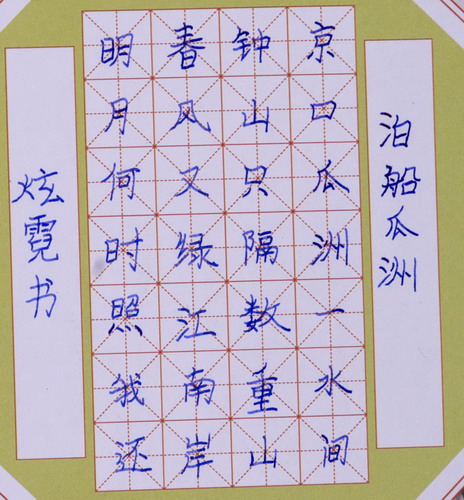 泊船瓜洲
京口瓜洲一水间
钟山只隔数重山
春风又绿江南岸
明月何时照我还
炫霓书